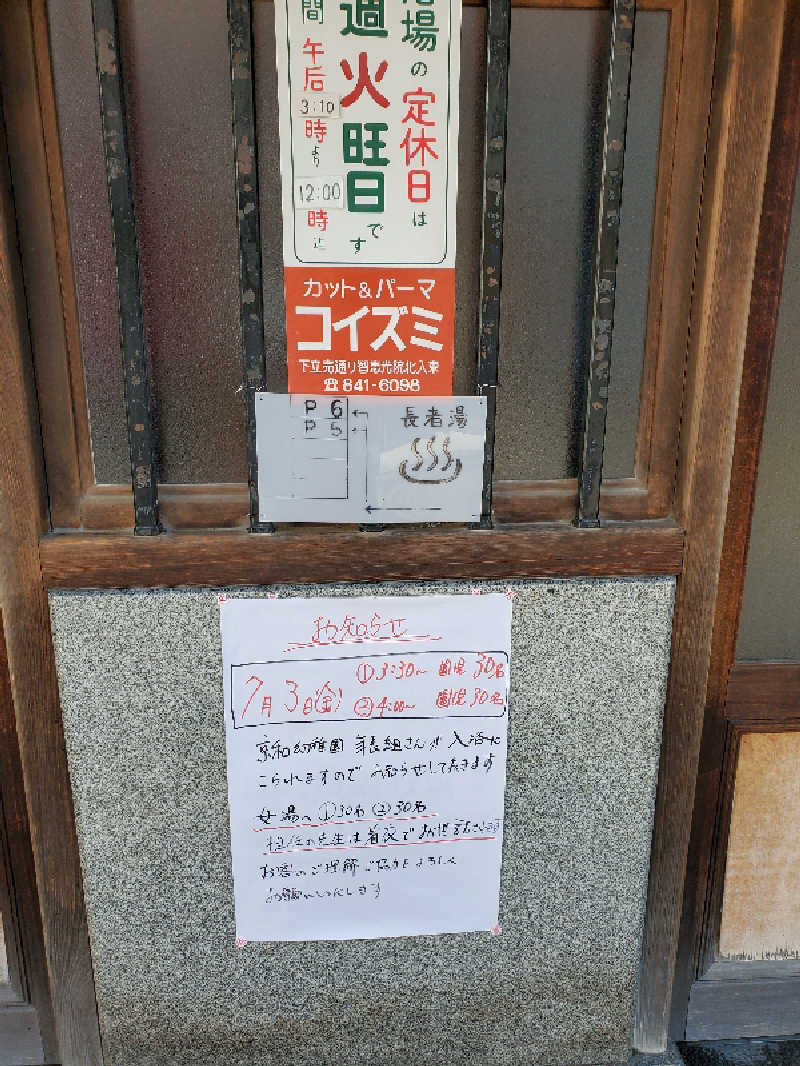 浴場の定休日は
週火旺日です
間午后3:10時より12:00時に
カット&パーマ
コイズミ
下立売通り智恵光院北入東
☎841-6098
P 6
P 5
長者湯
お知らせ
7月3日(金)
①3:30〜 園児30名
②4:00〜 園児30名
京和幼稚園 年長組さんが 入浴に
こられますので お知らせしておきます
女湯へ ①30名 ②30名
担任の先生は着衣で
お客様のご理解ご協力をよろしく
お願いいたします